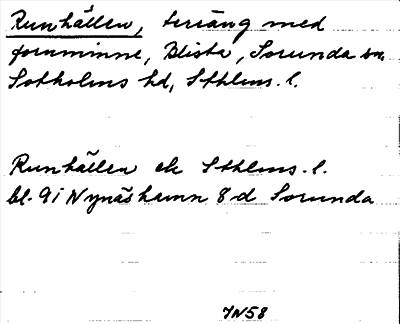 Runhällen, terräng med
fornminne, Blista, Sorunda sn,
Sotholms hd, Sthlms. l.
Runhällen ek Sthlms. l.
bl. 9i Nynäshamn 8d Sorunda
IN58